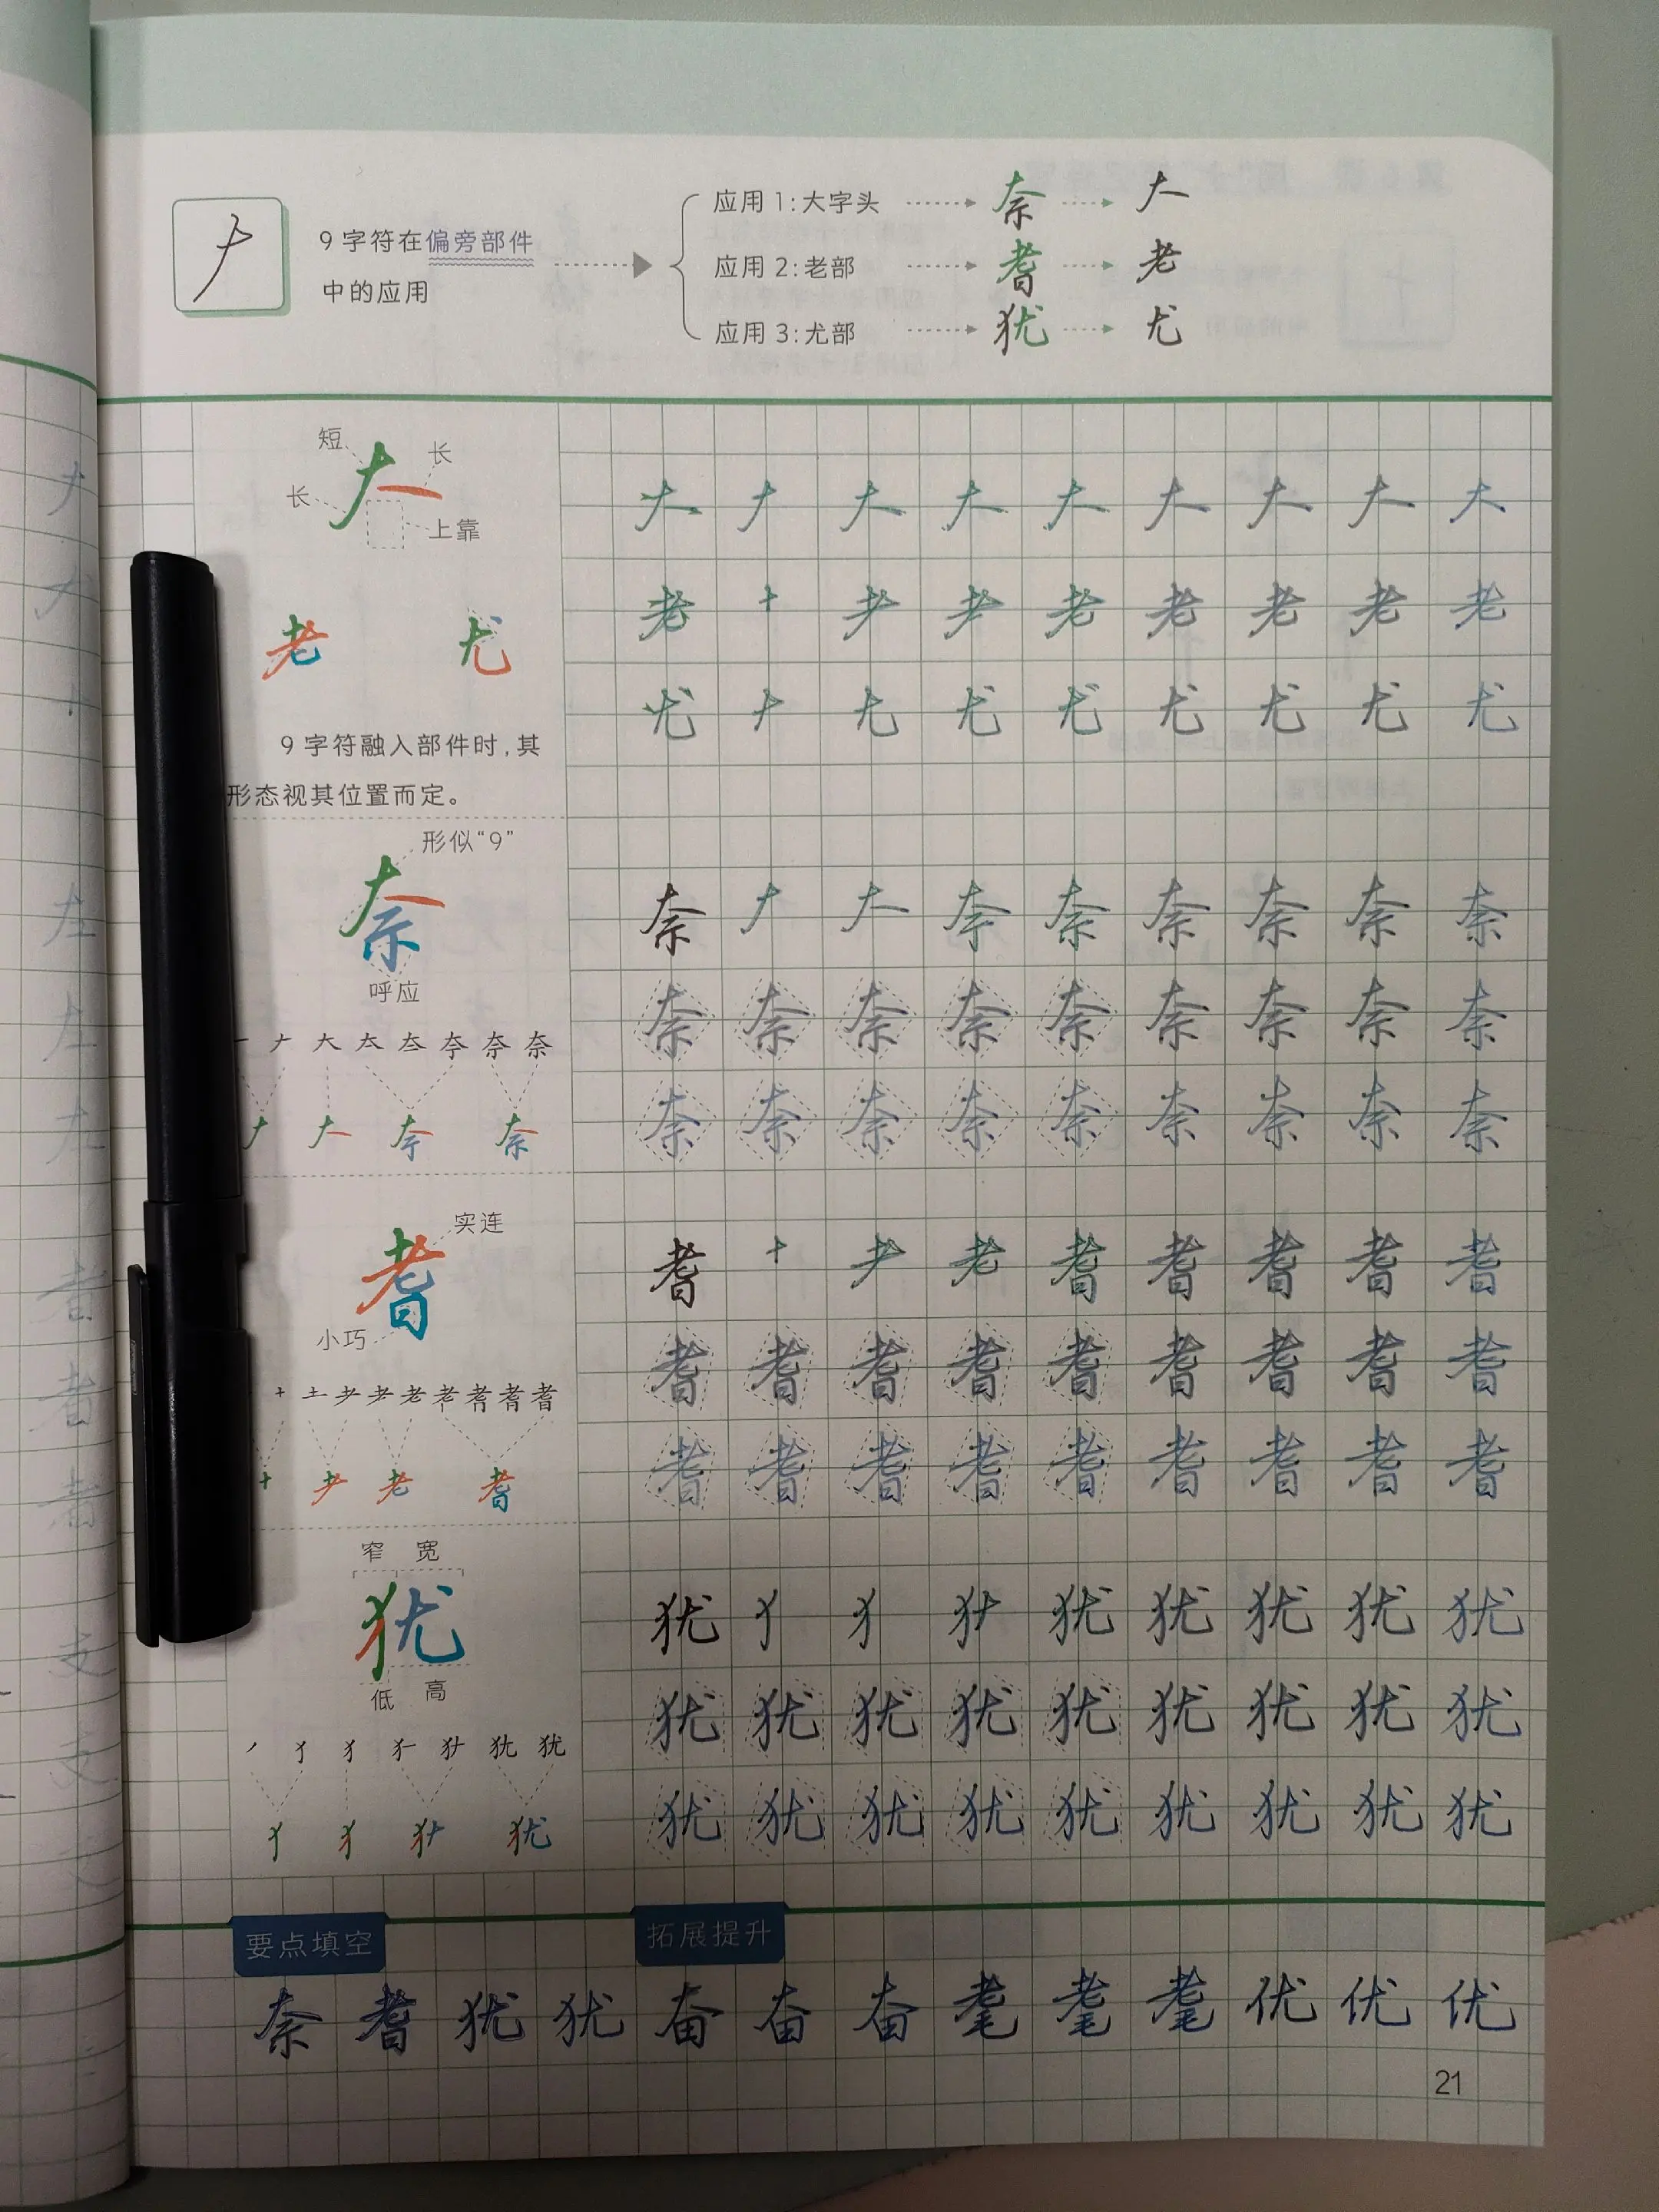 9字符在偏旁部件
中的应用
应用1:大字头 奈 𠂇一
应用2:老部 耆 老
应用3:尤部 犹 尤
短
长
长
上靠
大 大 大 大 大 大 大 大
老 尤
老 十 耂 耂 老 老 老 老 老
尤 尢 尤 尤 尤 尤 尤 尤
9字符融入部件时,其
形态视其位置而定。
形似“9”
奈
呼应
奈 大 奈 奈 奈 奈 奈 奈
奈 奈 奈 奈 奈 奈 奈 奈 奈
一 ナ 大 太 夳 夺 奈 奈
奈 奈 奈 奈 奈 奈 奈 奈 奈
大 奈
实连
耆
小巧
耆 十 耂 老 耆 耆 耆 耆 耆
耆 耆 耆 耆 耆 耆 耆 耆 耆
十 土 耂 老 耆 耆 耆
耆 耆 耆 耆 耆 耆 耆 耆 耆
十 耂 老 耆
窄 宽
犹
低 高
犹 犭 犹 犹 犹 犹 犹
犹 犹 犹 犹 犹 犹 犹 犹 犹
丿 犭 犹 犹
犹 犹 犹 犹 犹 犹 犹 犹 犹
犭 犹
要点填空 拓展提升
奈 耆 犹 犹 奋 奋 奋 耄 耄 耄 优 优 优
21